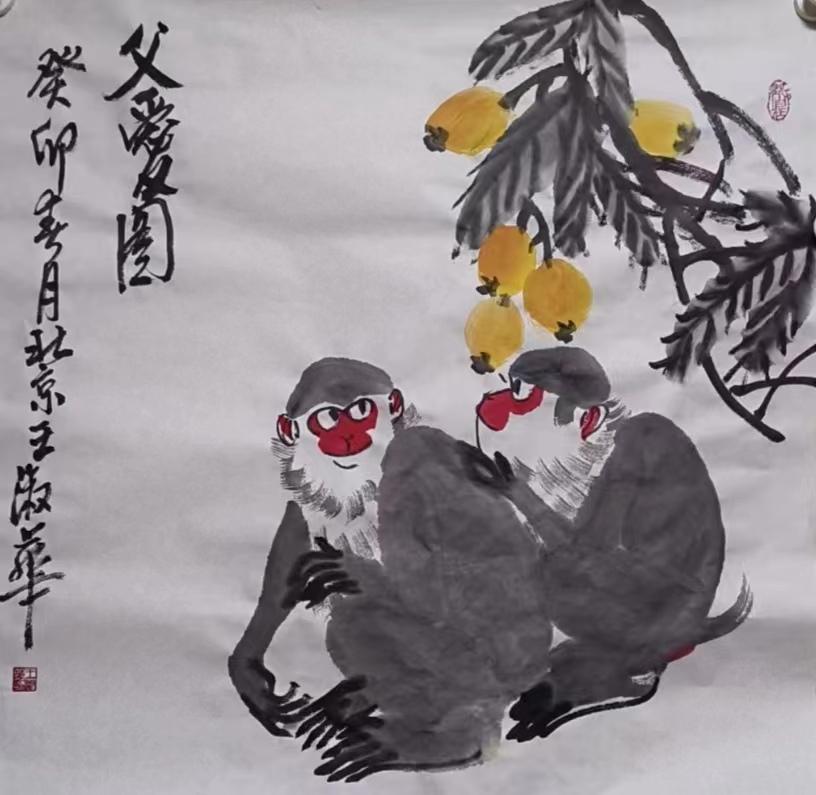 父愛圖
癸卯春月北京王淑華